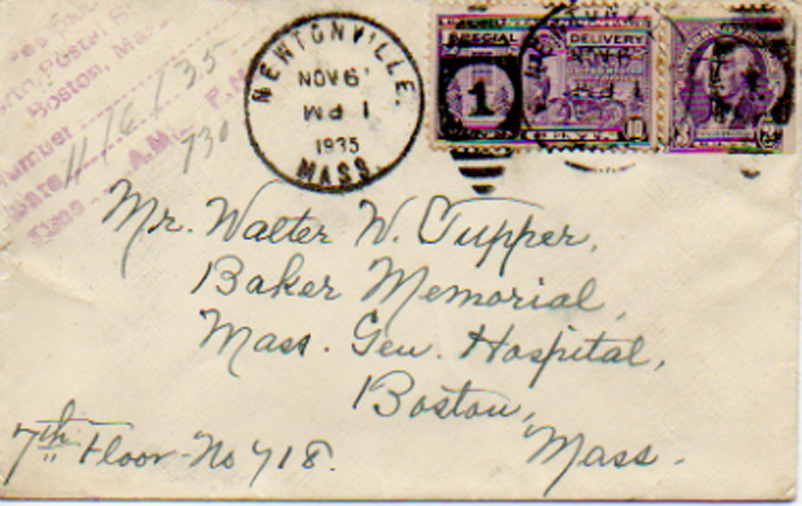 Postal S
Boston, Mass
Number
Date 11/6/35
Time A.M. P.M
730
NEWTONVILLE.
NOV 6
1 PM
1935
MASS.
SPECIAL DELIVERY
1
Mr. Walter W. Tupper,
Baker Memorial,
Mass. Gen. Hospital,
Boston,
Mass.
7th Floor-No 718.